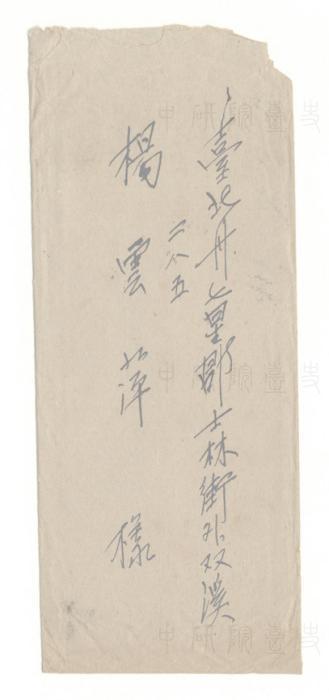 臺北州七星郡士林街外双溪
二八五
楊雲萍 樣
中研院臺史
中研院臺史
中研院臺史